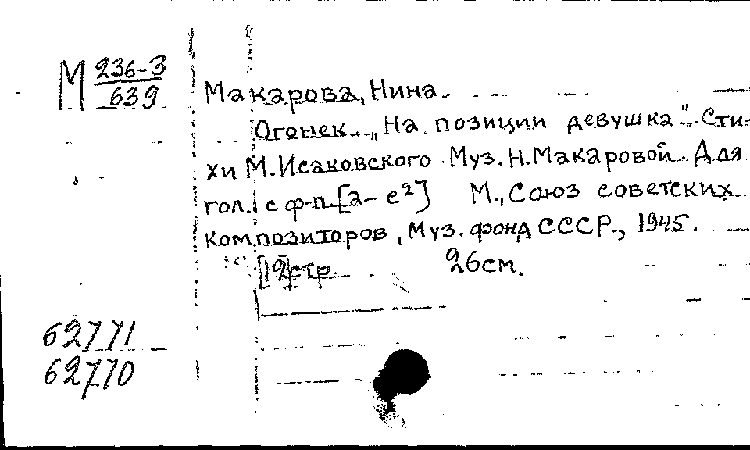 М 236-3
639
Макарова, Нина.
Огонек. „На позиции девушка". Сти-
хи М. Исаковского. Муз. Н. Макаровой. Для
гол. с ф-п. [a - e²] М., Союз советских
композиторов, Муз. фонд СССР, 1945.
стр. 26см.
62771
62770